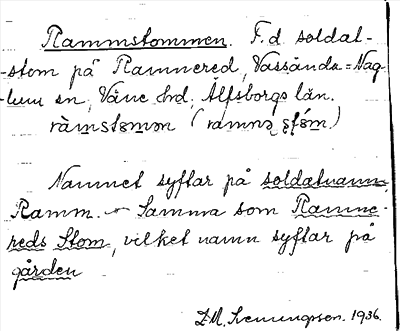 Rammstommen. F.d soldat-
-stom på Ramnered, Vassända=Nag-
-lum sn, Väne hd, Älfsborgs län.
Namnet syftar på soldatnamn
Ramm. - Samma som Ramne-
reds Stom, vilket namn syftar på
gården
1936.